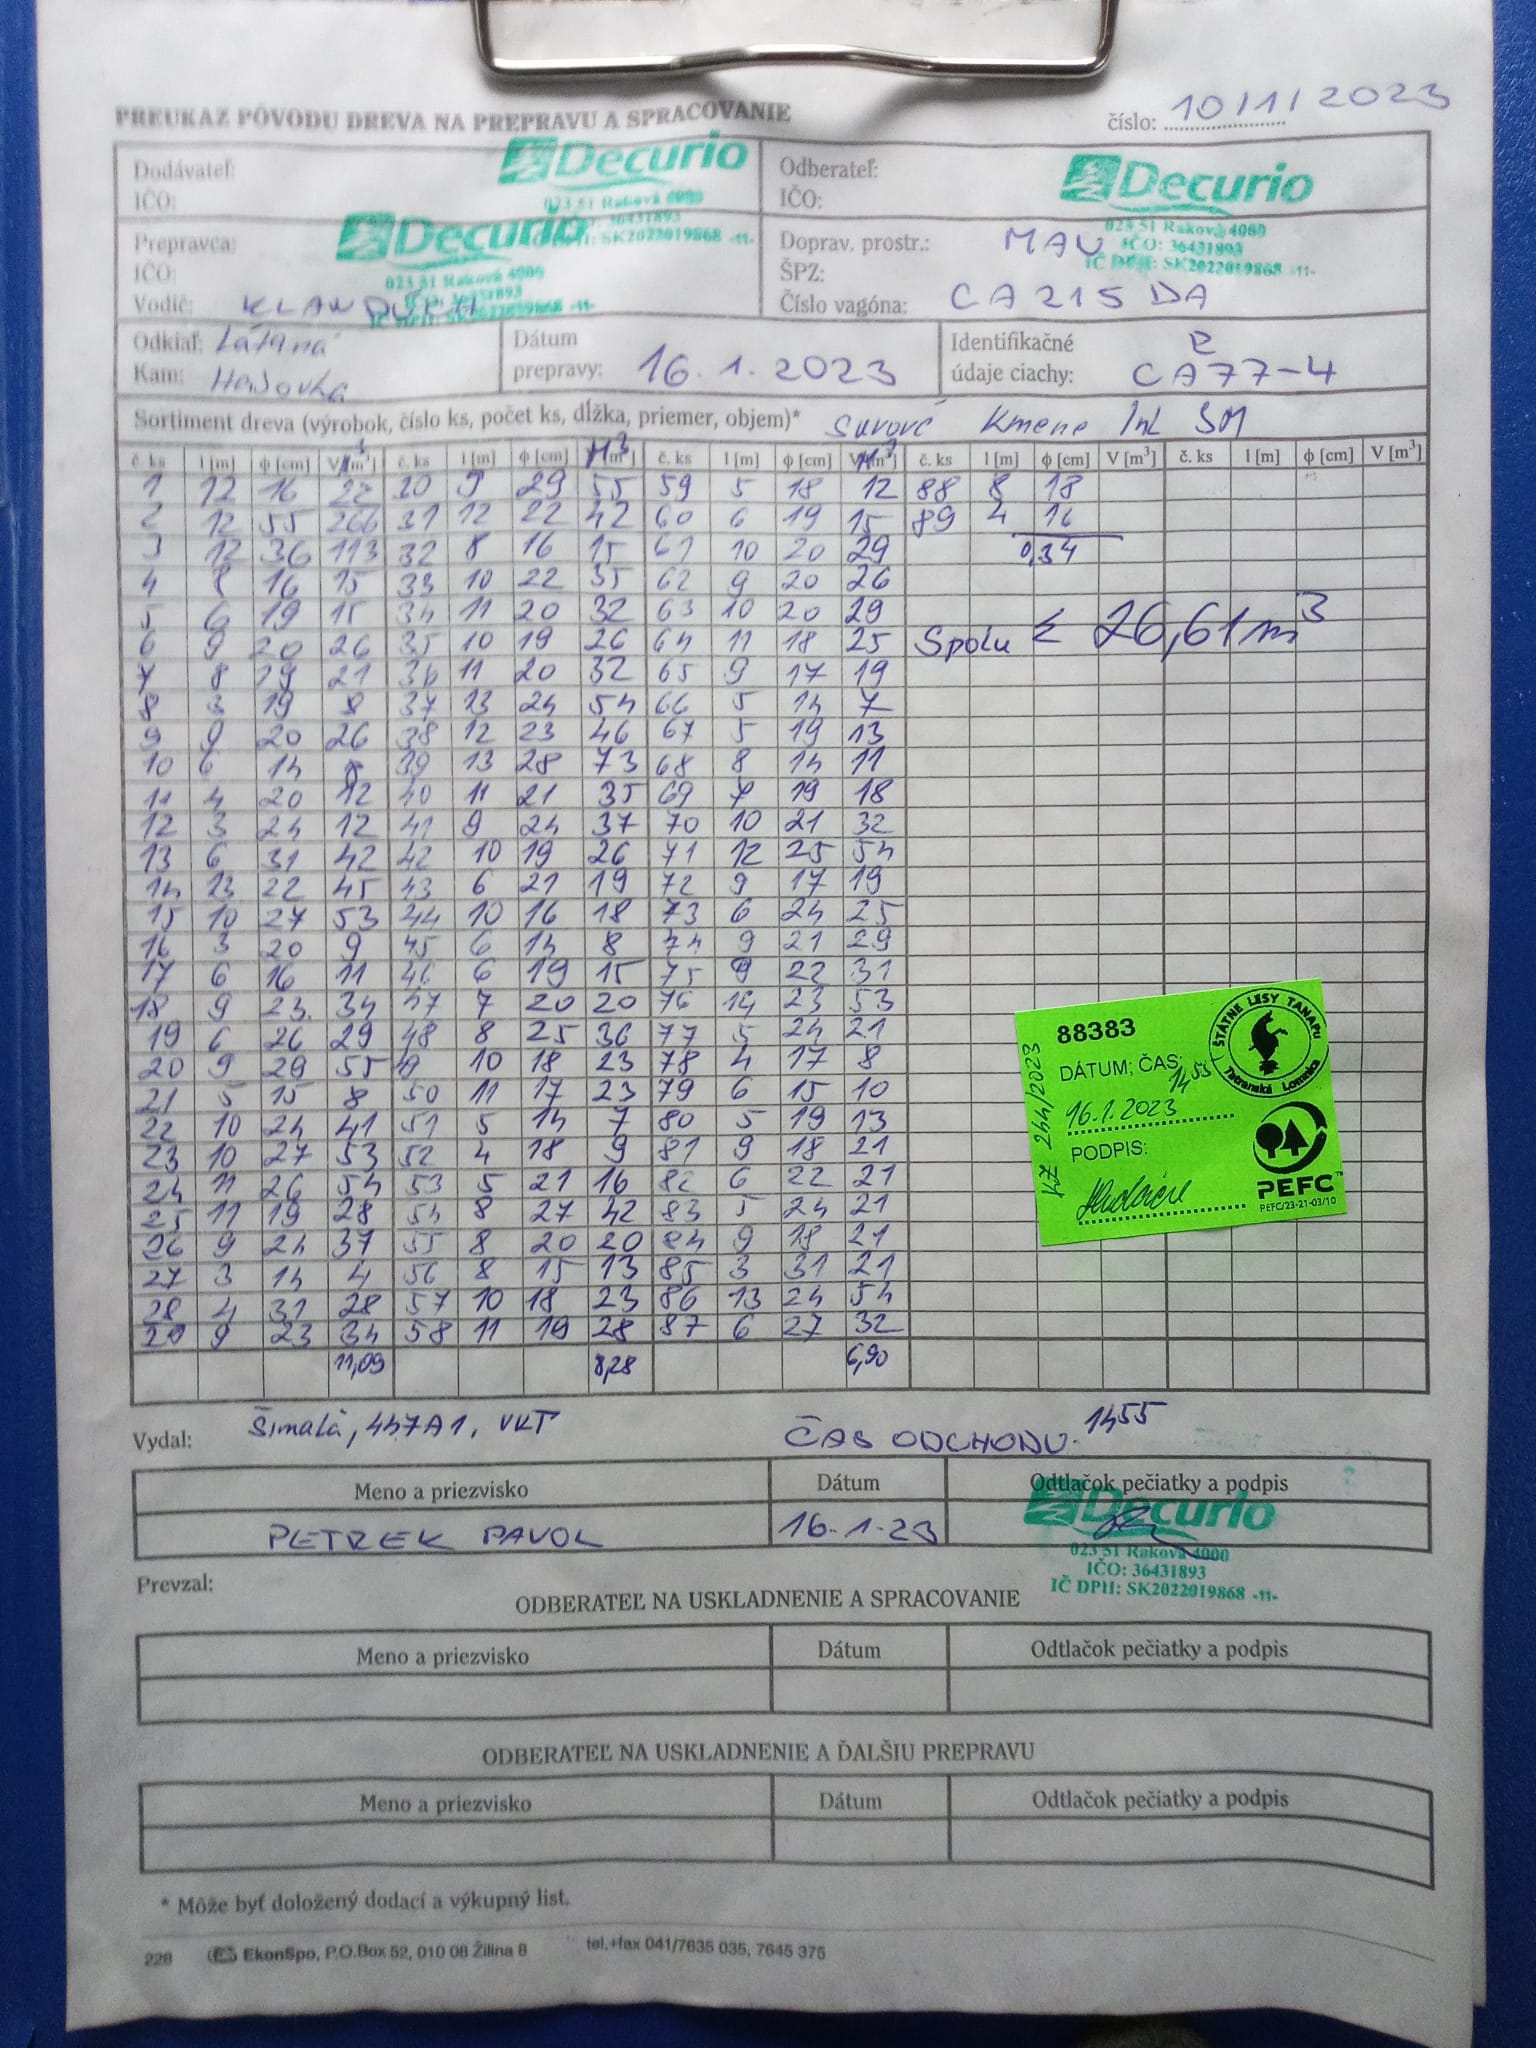 PREUKAZ PÔVODU DREVA NA PREPRAVU A SPRACOVANIE
číslo: 10/1/2023
Dodávateľ: Decurio
IČO: 023 51 Raková 4000
Odberateľ: Decurio
IČO:
023 51 Raková 4000
IČO: 36431893
IČ DPH: SK2022019868 -11-
Prepravca: Decurio
IČO: 023 51 Raková 4000
Vodič:
Doprav. prostr.: MAN
ŠPZ:
Číslo vagóna: CA215DA
Odkiaľ:
Kam:
Dátum
prepravy: 16.1.2023
Identifikačné
údaje ciachy: CA77-4
Sortiment dreva (výrobok, číslo ks, počet ks, dĺžka, priemer, objem)* Surové Kmene Ihl SM
č. ks l [m] ϕ [cm] V [m³] č. ks l [m] ϕ [cm] [m³] č. ks l [m] ϕ [cm] V [m³] č. ks l [m] ϕ [cm] V [m³] č. ks l [m] ϕ [cm] V [m³]
1 12 16 22 30 9 29 55 59 5 18 12 88 8 18
2 12 55 266 31 12 22 42 60 6 19 15 89 4 16
3 12 36 113 32 8 16 15 61 10 20 29 0,34
4 8 16 15 33 10 22 35 62 9 20 26
5 6 19 15 34 11 20 32 63 10 20 29
6 9 20 26 35 10 19 26 64 11 18 25 Spolu Σ 26,61m³
7 8 19 21 36 11 20 32 65 9 17 19
8 3 19 8 37 13 24 54 66 5 14 7
9 9 20 26 38 12 23 46 67 5 19 13
10 6 14 8 39 13 28 73 68 8 14 11
11 4 20 12 40 11 21 35 69 7 19 18
12 3 24 12 41 9 24 37 70 10 21 32
13 6 31 42 42 10 19 26 71 12 25 54
14 13 22 45 43 6 21 19 72 9 17 19
15 10 27 53 44 10 16 18 73 6 24 25
16 3 20 9 45 6 14 8 74 9 21 29
17 6 16 11 46 6 19 15 75 9 22 31
18 9 23 34 47 7 20 20 76 14 23 53
19 6 26 29 48 8 25 36 77 5 24 21
20 9 29 55 49 10 18 23 78 4 17 8
21 5 15 8 50 11 17 23 79 6 15 10
22 10 24 41 51 5 14 7 80 5 19 13
23 10 27 53 52 4 18 9 81 9 18 21
24 11 26 54 53 5 21 16 82 6 22 21
25 11 19 28 54 8 27 42 83 5 24 21
26 9 24 37 55 8 20 20 84 9 18 21
27 3 14 4 56 8 15 13 85 3 31 21
28 4 31 28 57 10 18 23 86 13 24 54
29 9 23 34 58 11 19 28 87 6 27 32
11,09 8,28 6,90
88383
ŠTÁTNE LESY TANAPU
Tatranská Lomnica
DÁTUM; ČAS: 14 55
16.1.2023
PODPIS:
KZ 244/2023
PEFC™
PEFC/23-21-03/10
Vydal: Šimala, 447A1, VKT
ČAS ODCHODU. 14 55
Meno a priezvisko Dátum Odtlačok pečiatky a podpis
PETREK PAVOL 16.1.23 Decurio
023 51 Raková 4000
IČO: 36431893
IČ DPH: SK2022019868 -11-
Prevzal:
ODBERATEĽ NA USKLADNENIE A SPRACOVANIE
Meno a priezvisko Dátum Odtlačok pečiatky a podpis
ODBERATEĽ NA USKLADNENIE A ĎALŠIU PREPRAVU
Meno a priezvisko Dátum Odtlačok pečiatky a podpis
* Môže byť doložený dodací a výkupný list.
228 EkonSpo, P.O.Box 52, 010 08 Žilina 8 tel.+fax 041/7635 035, 7645 375